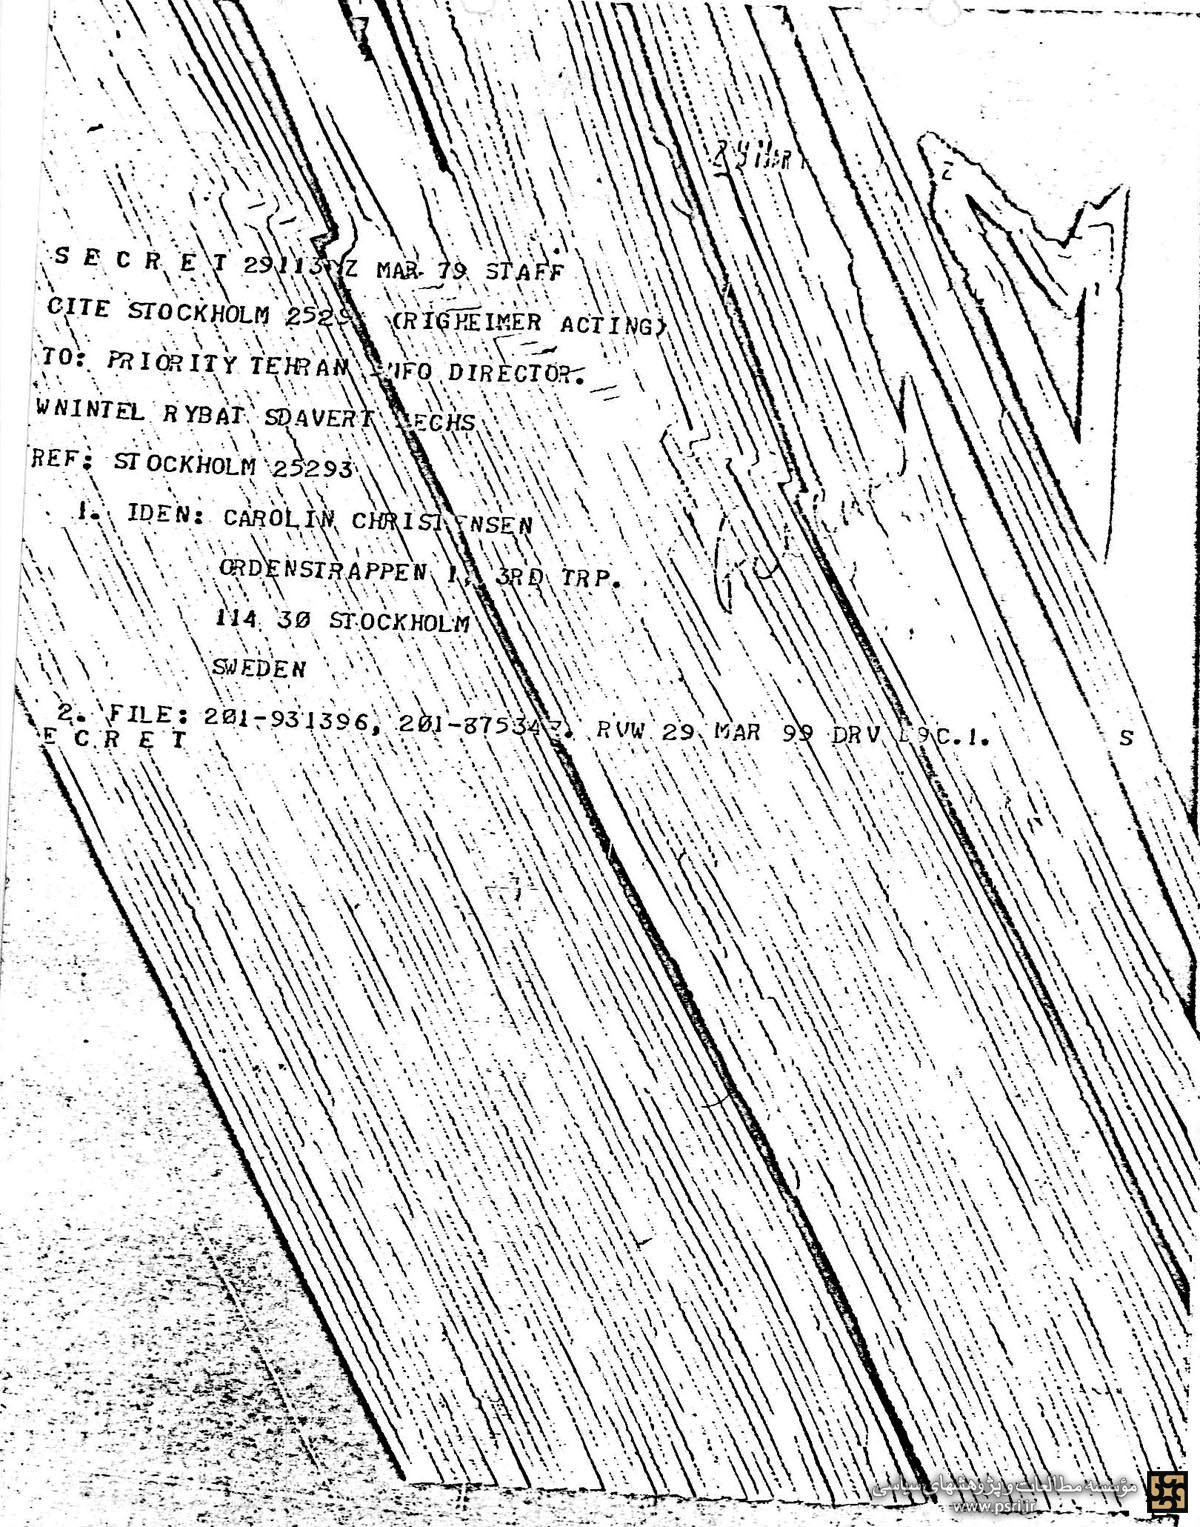 24 MAR
S E C R E T MAR 79 STAFF
CITE STOCKHOLM (RIGHEIMER ACTING)
TO: PRIORITY TEHRAN INFO DIRECTOR.
WNINTEL RYBAT SDAVERT
REF: STOCKHOLM 25293
1. IDEN: CAROLIN CHRISTENSEN
ORDENSTRAPPEN 1, 3RD TRP.
114 30 STOCKHOLM
SWEDEN
2. FILE: 201-931396, RVW 29 MAR 99 DRV D9C.1. S
E C R E T
مؤسسه مطالعات و پژوهشهای سیاسی
www.psri.ir